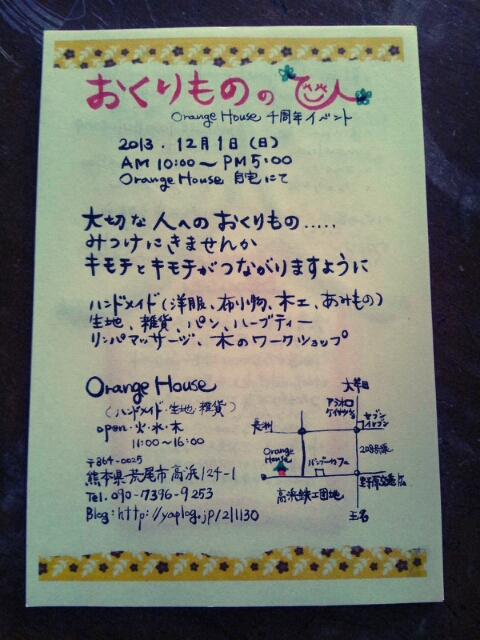 おくりものの 人
Orange House 十周年イベント
2013.12月1日(日)
AM 10:00〜PM5:00
Orange House 自宅にて
大切な人へのおくりもの.....
みつけにきませんか
キモチとキモチがつながりますように
ハンドメイド(洋服、布小物、木工、あみもの)
生地、雑貨、パン、ハーブティー
リンパマッサージ、木のワークショップ
Orange House
(ハンドメイド・生地・雑貨)
open・火・水・木
11:00〜16:00
〒864-0025
熊本県荒尾市高浜124-1
Tel.090-7396-9253
Blog:http://yaplog.jp/211130
大牟田
長洲
セブン
イレブン
208号線
Orange
House
バンブーカフェ
高浜鉄工団地
玉名